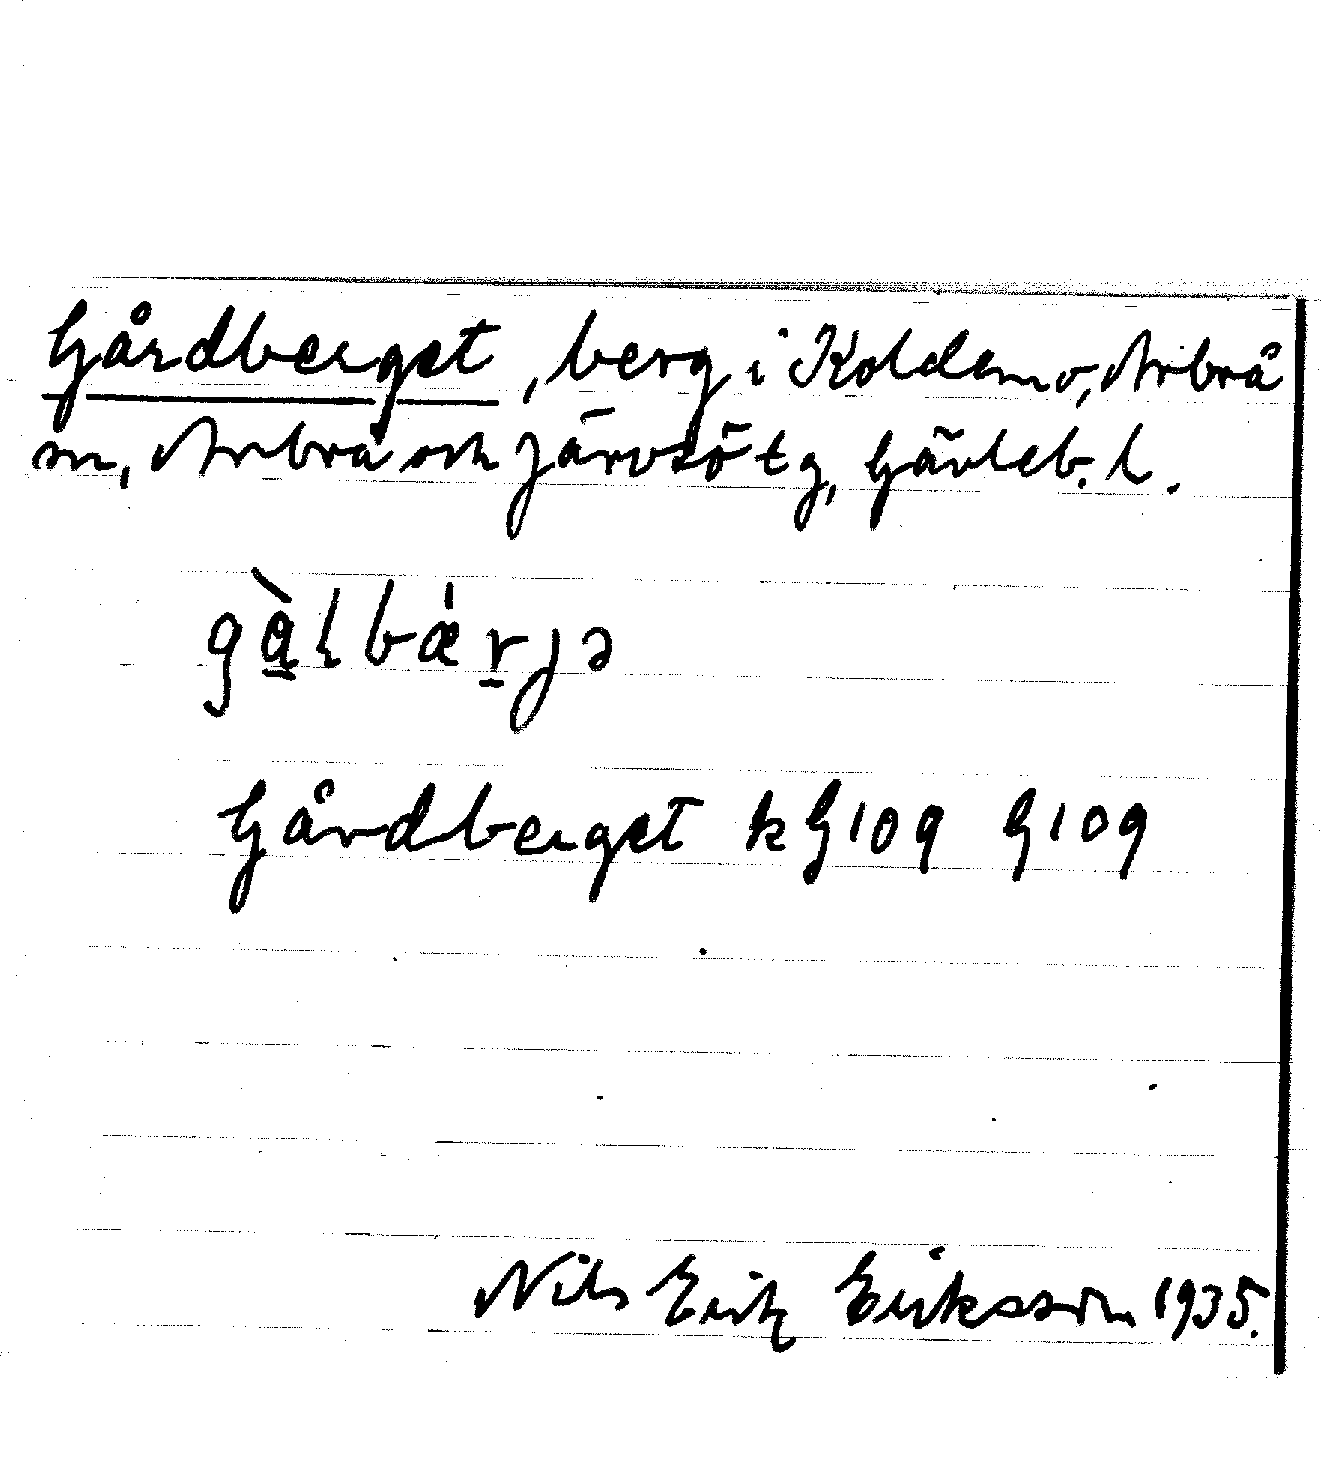 Gårdberget, berg i Koldemo, Arbrå
sn, Arbrå och Järvsö tg, Gävleb. l.
gàlbǽrjə
Gårdberget k G109 G109
Nils Erik Eriksson 1935.